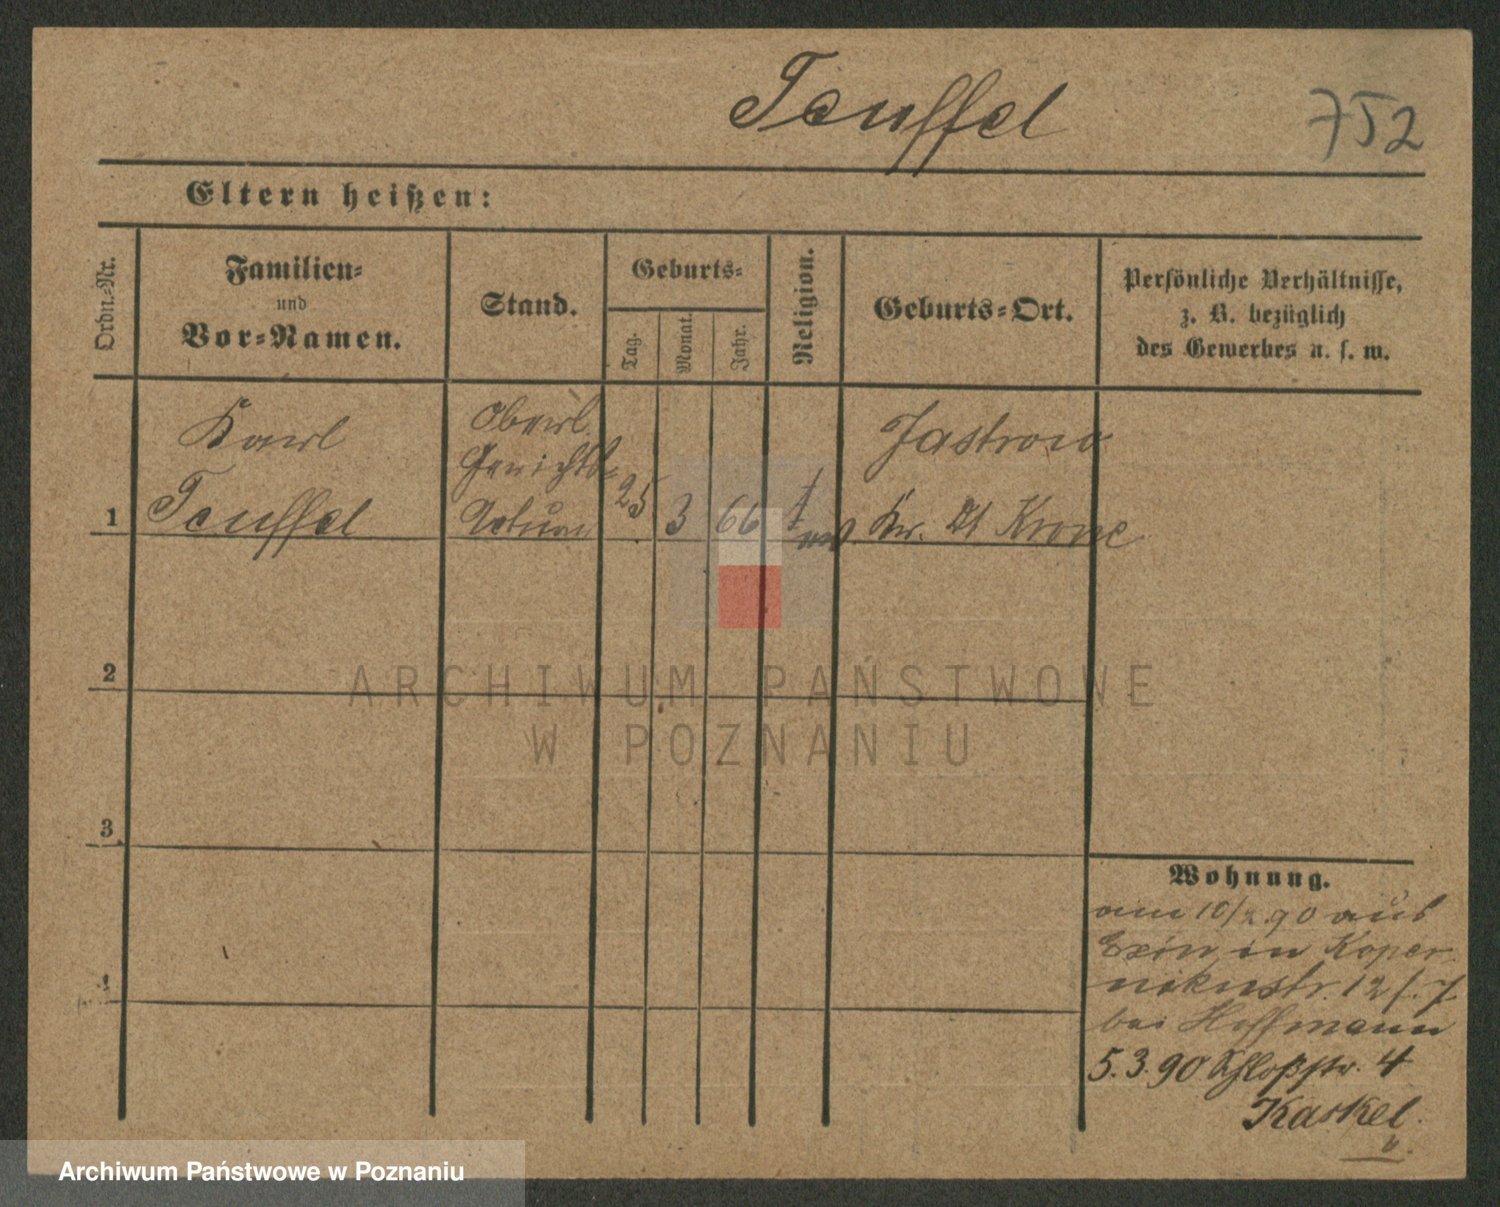 Teuffel
752
Eltern heißen:
Ordn.-Nr.
Familien-
und
Vor-Namen.
Stand.
Geburts-
Tag.
Monat.
Jahr.
Religion.
Geburts-Ort.
Persönliche Verhältnisse,
z. B. bezüglich
des Gewerbes u. s. w.
1
Karl
Teuffel
Oberl.
Gerichts-
Actuar
25
3
66
Jastrow
Kr. Dt Krone
2
3
4
Wohnung.
am 10/2.90 aus
Exin in Koper
nikustr. 12/
bei Hoffmann
5.3.90 Schloßstr. 4
Kaskel.
ARCHIWUM PAŃSTWOWE
W POZNANIU
Archiwum Państwowe w Poznaniu